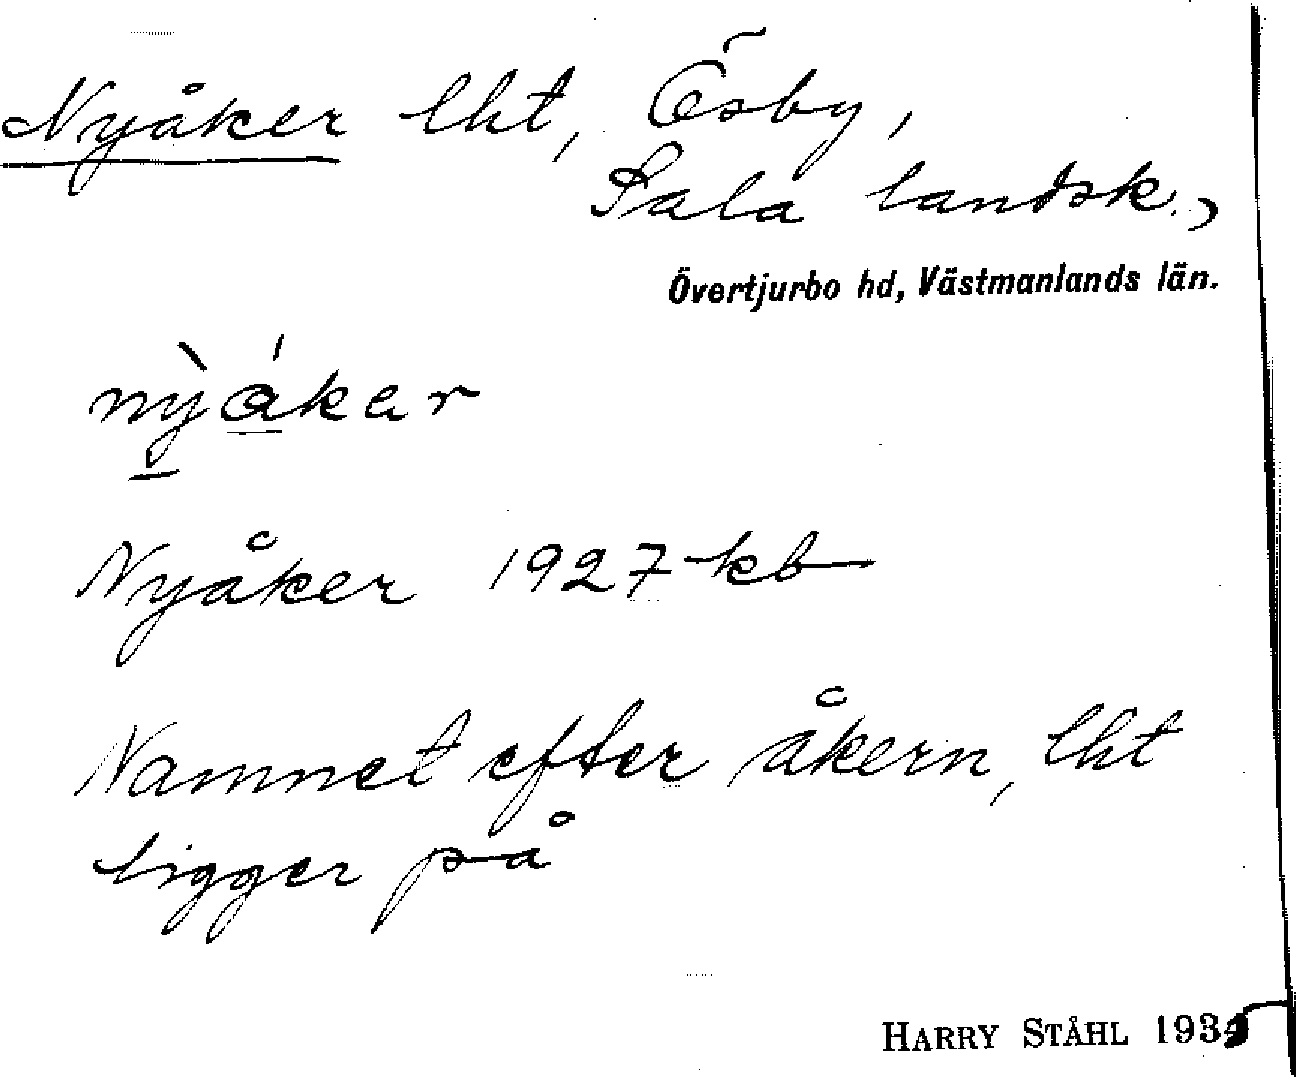 Nyåker lht, Ösby,
Sala landsk.,
Övertjurbo hd, Västmanlands län.
Nyåker 1927 kb
Namnet efter åkern, lht
ligger på
HARRY STÅHL